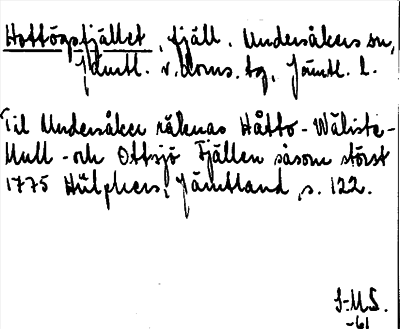 Hottögsfjället, fjäll. Undersåkers sn,
Jämtl. v. doms. tg, Jämtl. l.
Til Undersåker räknas Håtto-Wäliste-
Mull-och Ottsjö Fjällen såsom störst
1775 Hülphers, Jämtland, s. 122.
J-M S.
-61